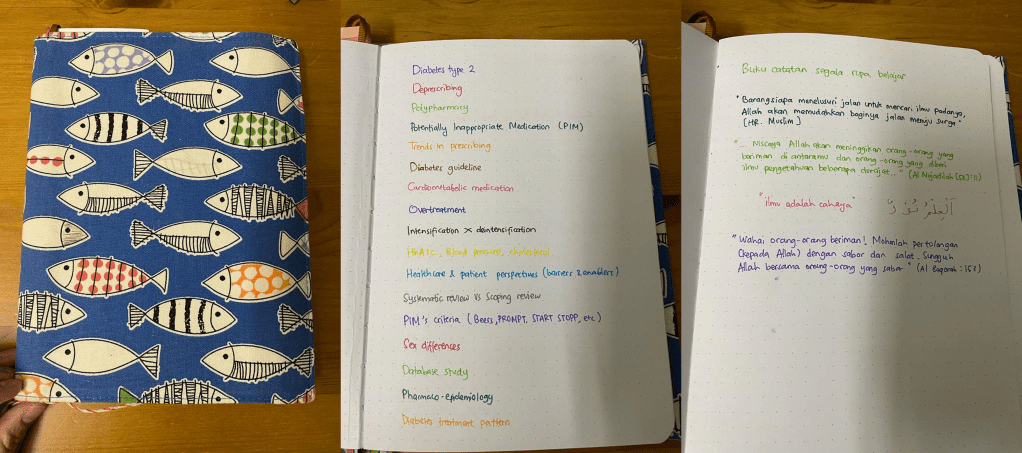 Diabetes type 2
Deprescribing
Polypharmacy
Potentially Inappropriate Medication (PIM)
Trends in prescribing
Diabetes guideline
Cardiometabolic medication
Overtreatment
Intensification x deintensification
HbA1c, Blood pressure, cholesterol
Healthcare & patient perspectives (barriers & enablers)
Systematic review vs Scoping review
PIM's criteria (Beers, PROMPT, START STOPP, etc.)
Sex differences
Database study
Pharmaco-epidemiology
Diabetes treatment pattern
Buku catatan segala rupa belajar
"Barangsiapa menelusuri jalan untuk mencari ilmu padanya,
Allah akan memudahkan baginya jalan menuju surga"
[HR. Muslim]
"... Niscaya Allah akan meninggikan orang-orang yang
beriman di antaramu dan orang-orang yang diberi
ilmu pengetahuan beberapa derajat..." (Al Mujadilah [58]:11)
"ilmu adalah cahaya" اَلْعِلْمُ نُوْرٌ
"Wahai orang-orang beriman! Mohonlah pertolongan
(kepada Allah) dengan sabar dan salat. Sungguh
Allah bersama orang-orang yang sabar" (Al Baqarah: 153)